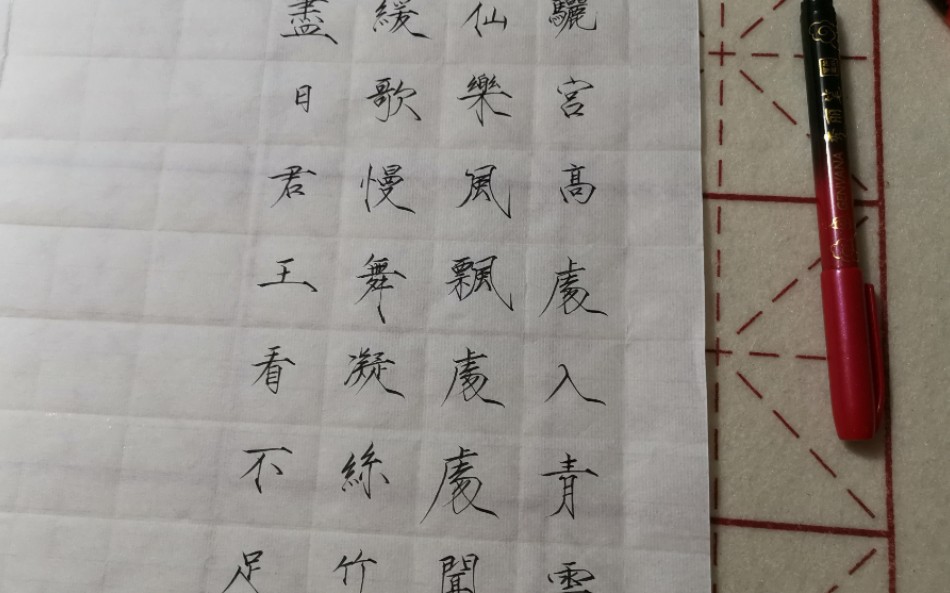 驪宮高處入青雲
仙樂風飄處處聞
緩歌慢舞凝絲竹
盡日君王看不足